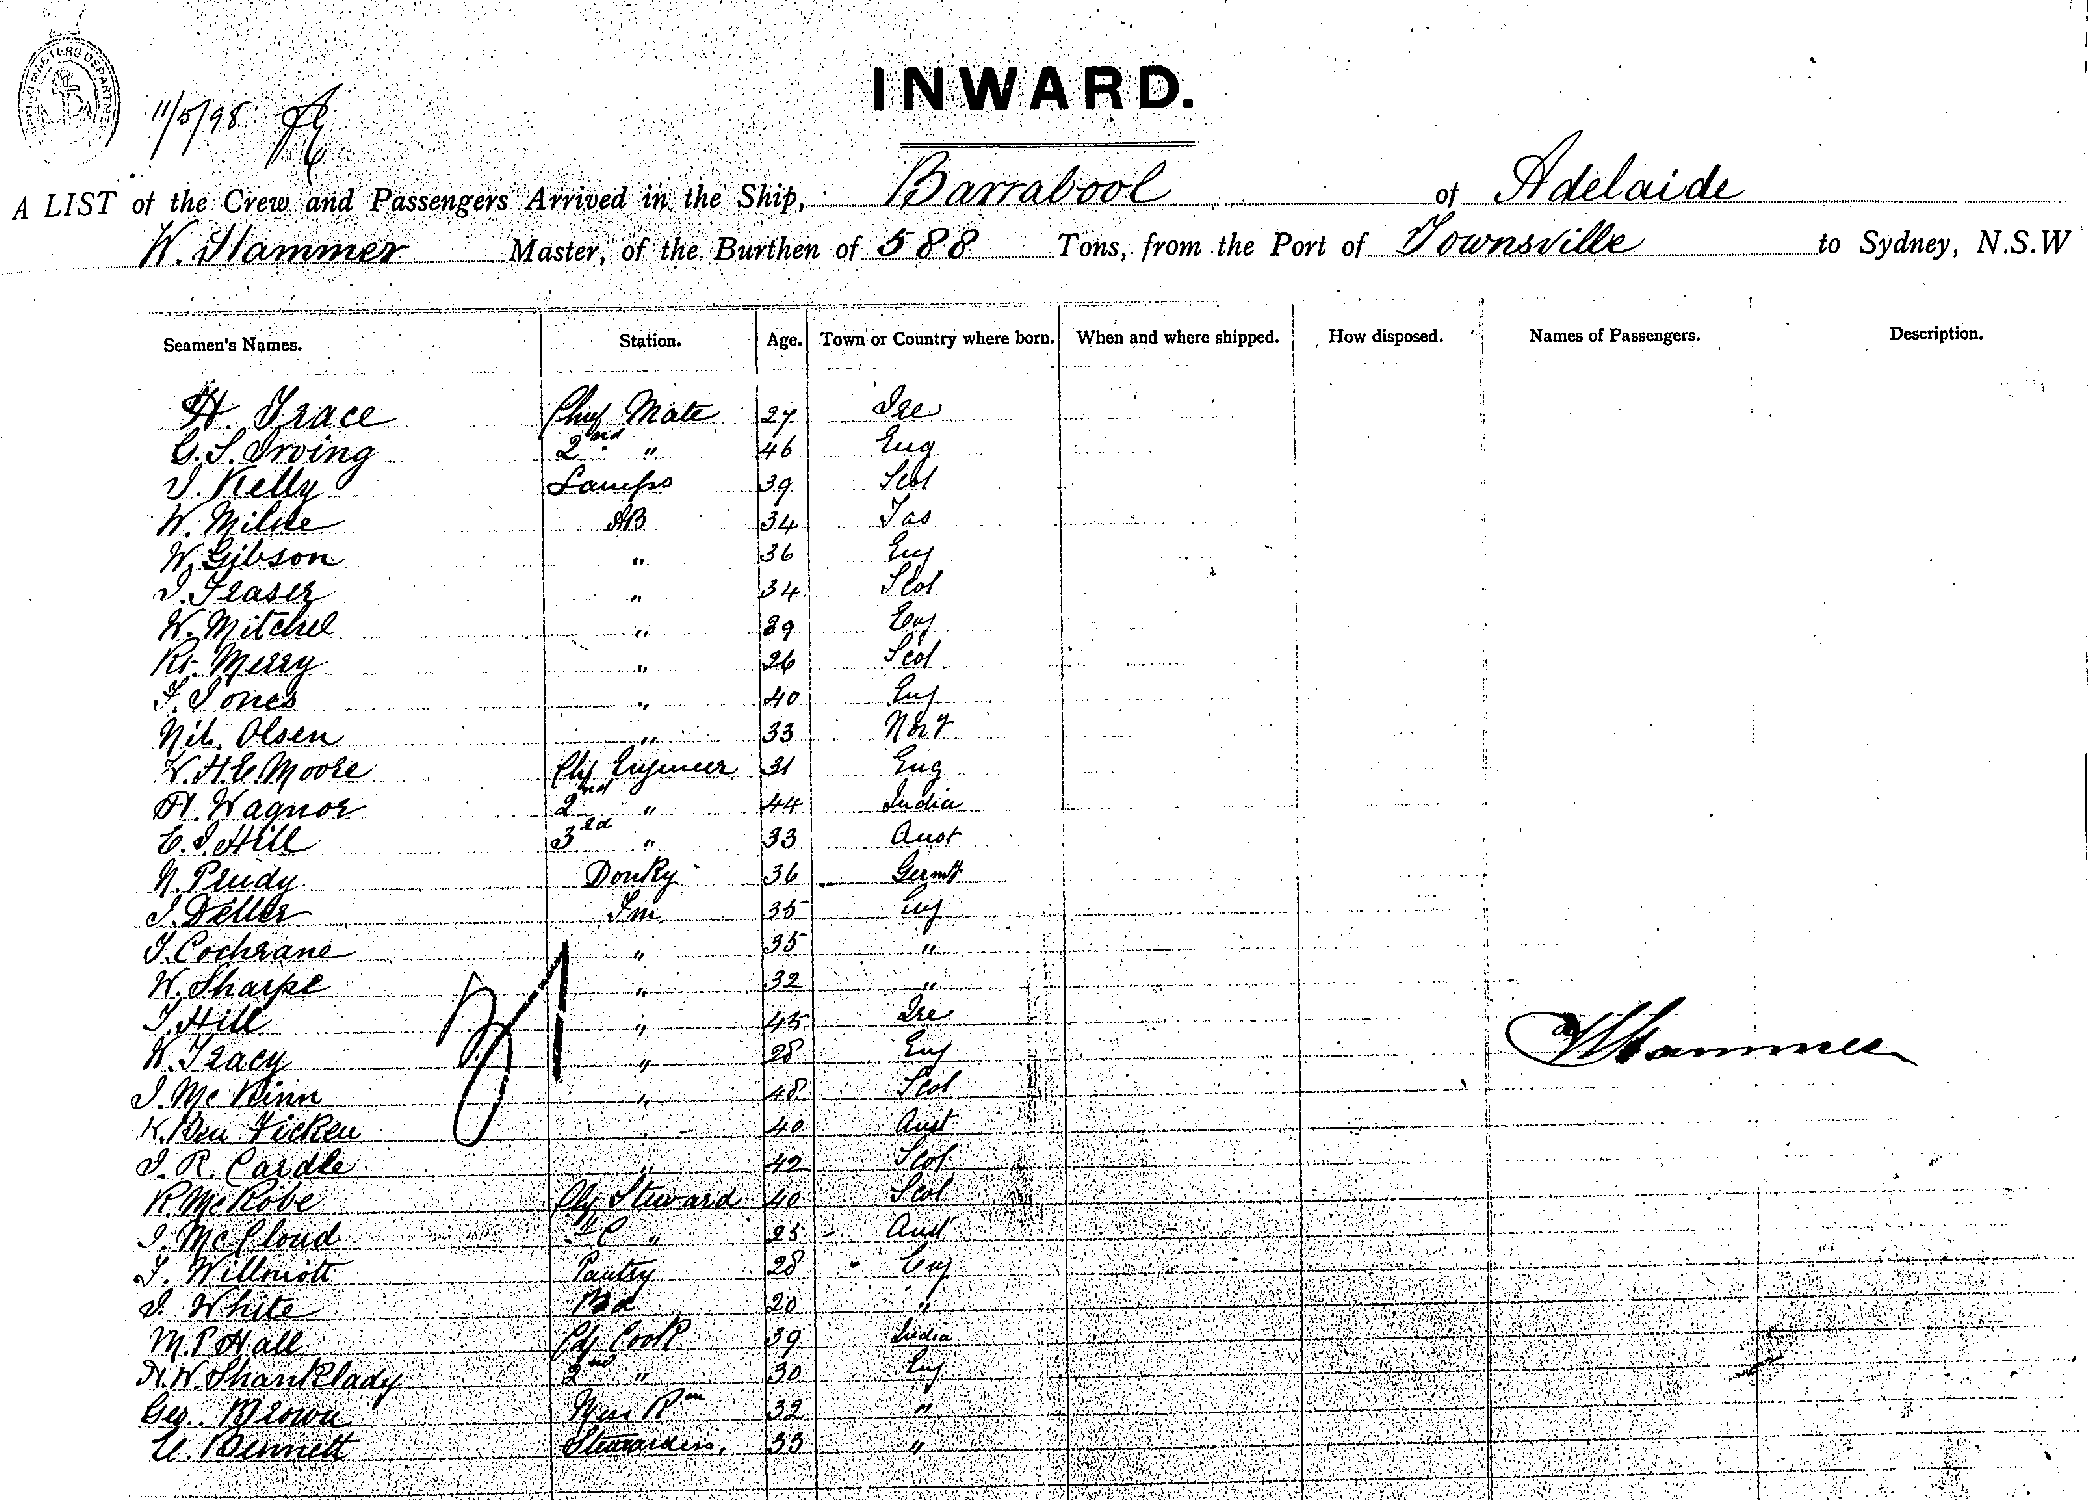 11/5/98
INWARD.
A LIST of the Crew and Passengers Arrived in the Ship, Barrabool of Adelaide
W. Hammer Master, of the Burthen of 588 Tons, from the Port of Townsville to Sydney, N.S.W
Seamen's Names. Station. Age. Town or Country where born. When and where shipped. How disposed. Names of Passengers. Description.
H. Grace Chief Mate 27 Ire
C. S. Irving 2nd " 46 Eng
J. Kelly Lamps 39 Scot
W. Milne AB 34 Tas
W. Gibson " 36 Eng
J. Fraser " 34 Scot
W. Mitchel " 39 Eng
Rt. Merry " 26 Scot
J. Jones " 40 Eng
Nils. Olsen " 33
W. H. E. Moore Chf Engineer 31 Eng
H. Wagnor 2nd " 44 India
E. J. Hill 3rd " 33 Aust
Donky 36
J. Deller Fm 35 Eng
J. Cochrane " 35 "
W. Sharpe " 32 "
J. Hill " 45 Ire
31
W Hammer
K. Tracy " 28 Eng
J. McKinn " 48 Scot
40 Aust
J. R. Cardle " 42 Scot
R McRobe Chf Steward 40 Scot
J. McCloud " 25 Aust
J. Willmott Pantry 28 Eng
J. White 20 "
M. P. Hall Chf Cook 39 India
H. W. Shanklady 2nd " 30 Eng
Geo. Brown Mess Rm 32 "
C. Bennett Stewardess, 33 "